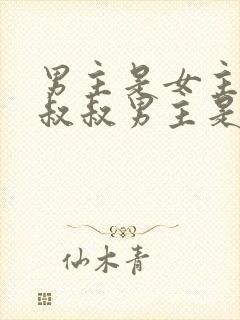 男主是女主
叔叔男主是
仙木青